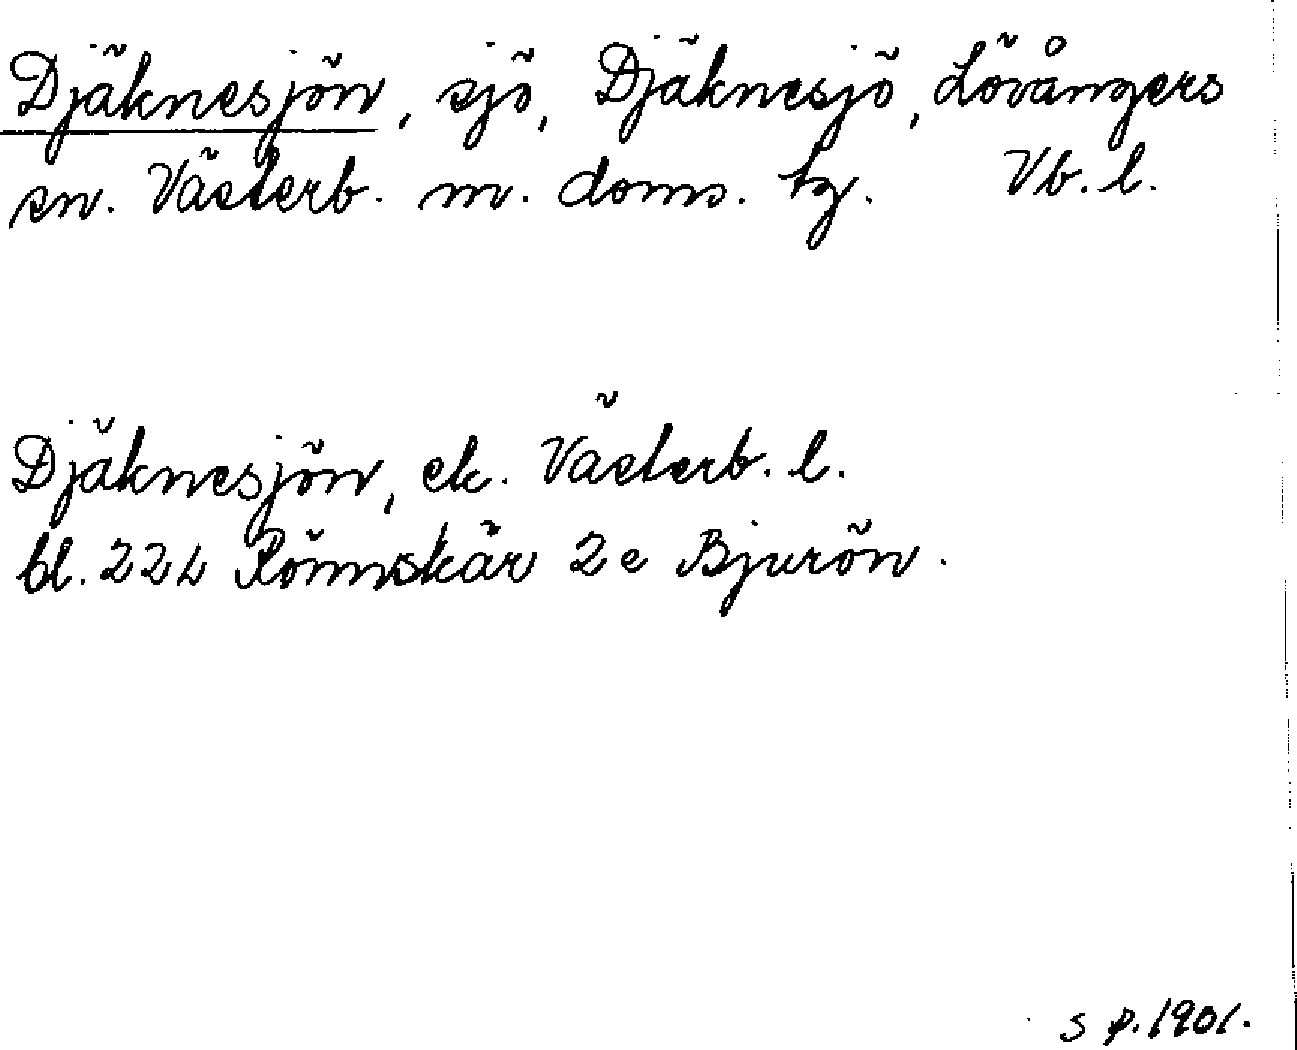 Djäknesjön, sjö, Djäknesjö, Lövångers
sn. Västerb. m. doms. tg. Vb. l.
Djäknesjön, ek. Västerb. l.
bl. 22L Rönnskär 2e Bjurön.
s p. 1901.